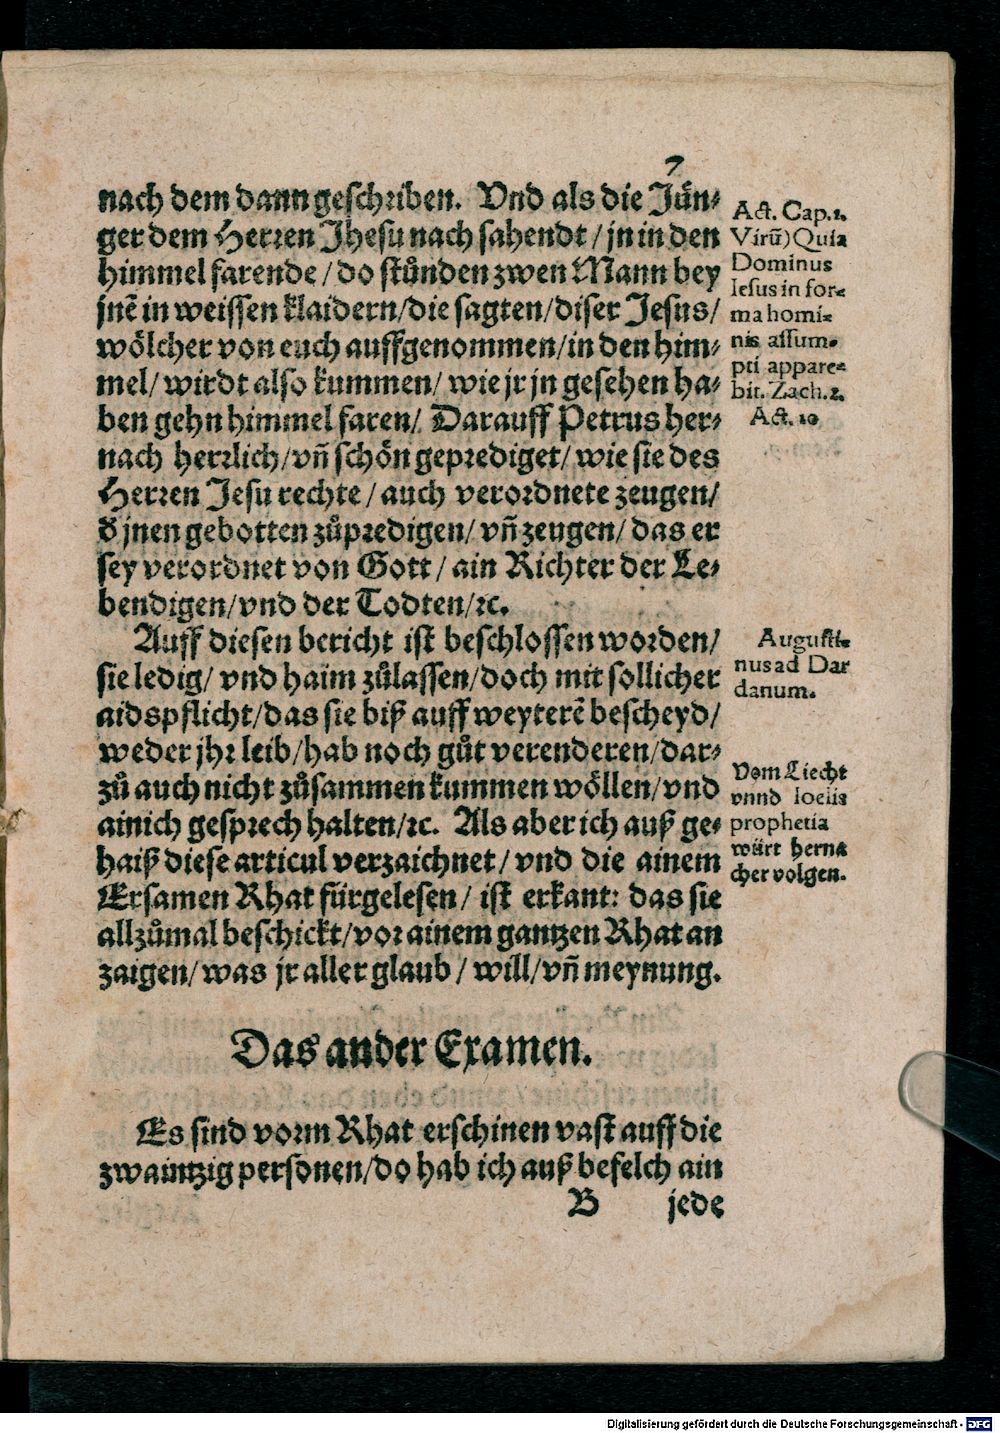 7
nach dem dann geschriben. Vnd als die Jün⸗
ger dem Herren Jhesu nach sahendt / jn in den
himmel farende / do stůnden zwen Mann bey
jnē in weissen klaidern/die sagten/diser Jesus/
wölcher von euch auffgenommen/in den him⸗
mel/ wirdt also kummen/ wie jr jn gesehen ha⸗
ben gehn himmel faren/ Darauff Petrus her⸗
nach herrlich/vñ schön geprediget/ wie sie des
Herren Jesu rechte / auch verordnete zeugen/
d̕ jnen gebotten zůpredigen/ vñ zeugen/ das er
sey verordnet von Gott / ain Richter der Le⸗
bendigen/vnd der Todten/ꝛc.
Act. Cap.1.
Virū)Quia
Dominus
Iesus in for⸗
ma homi⸗
nis assum⸗
pti appare⸗
bit. Zach.2.
Act. 10
Auff diesen bericht ist beschlossen worden/
sie ledig/ vnd haim zůlassen/doch mit sollicher
aidspflicht/das sie biß auff weyterē bescheyd/
weder jhr leib/hab noch gůt verenderen/dar⸗
zů auch nicht zůsammen kummen wöllen/vnd
ainich gesprech halten/ꝛc. Als aber ich auß ge⸗
haiß diese articul verzaichnet/ vnd die ainem
Ersamen Rhat fürgelesen/ ist erkant: das sie
allzůmal beschickt/vor ainem gantzen Rhat an
zaigen/ was jr aller glaub / will/vñ meynung.
Augusti⸗
nus ad Dar
danum.
Vom Liecht
vnnd Ioelis
prophetia
würt herna
cher volgen.
Das ander Examen.
Es sind vorm Rhat erschinen vast auff die
zwaintzig personen/do hab ich auß befelch ain
B jede
Digitalisierung gefördert durch die Deutsche Forschungsgemeinschaft - DFG